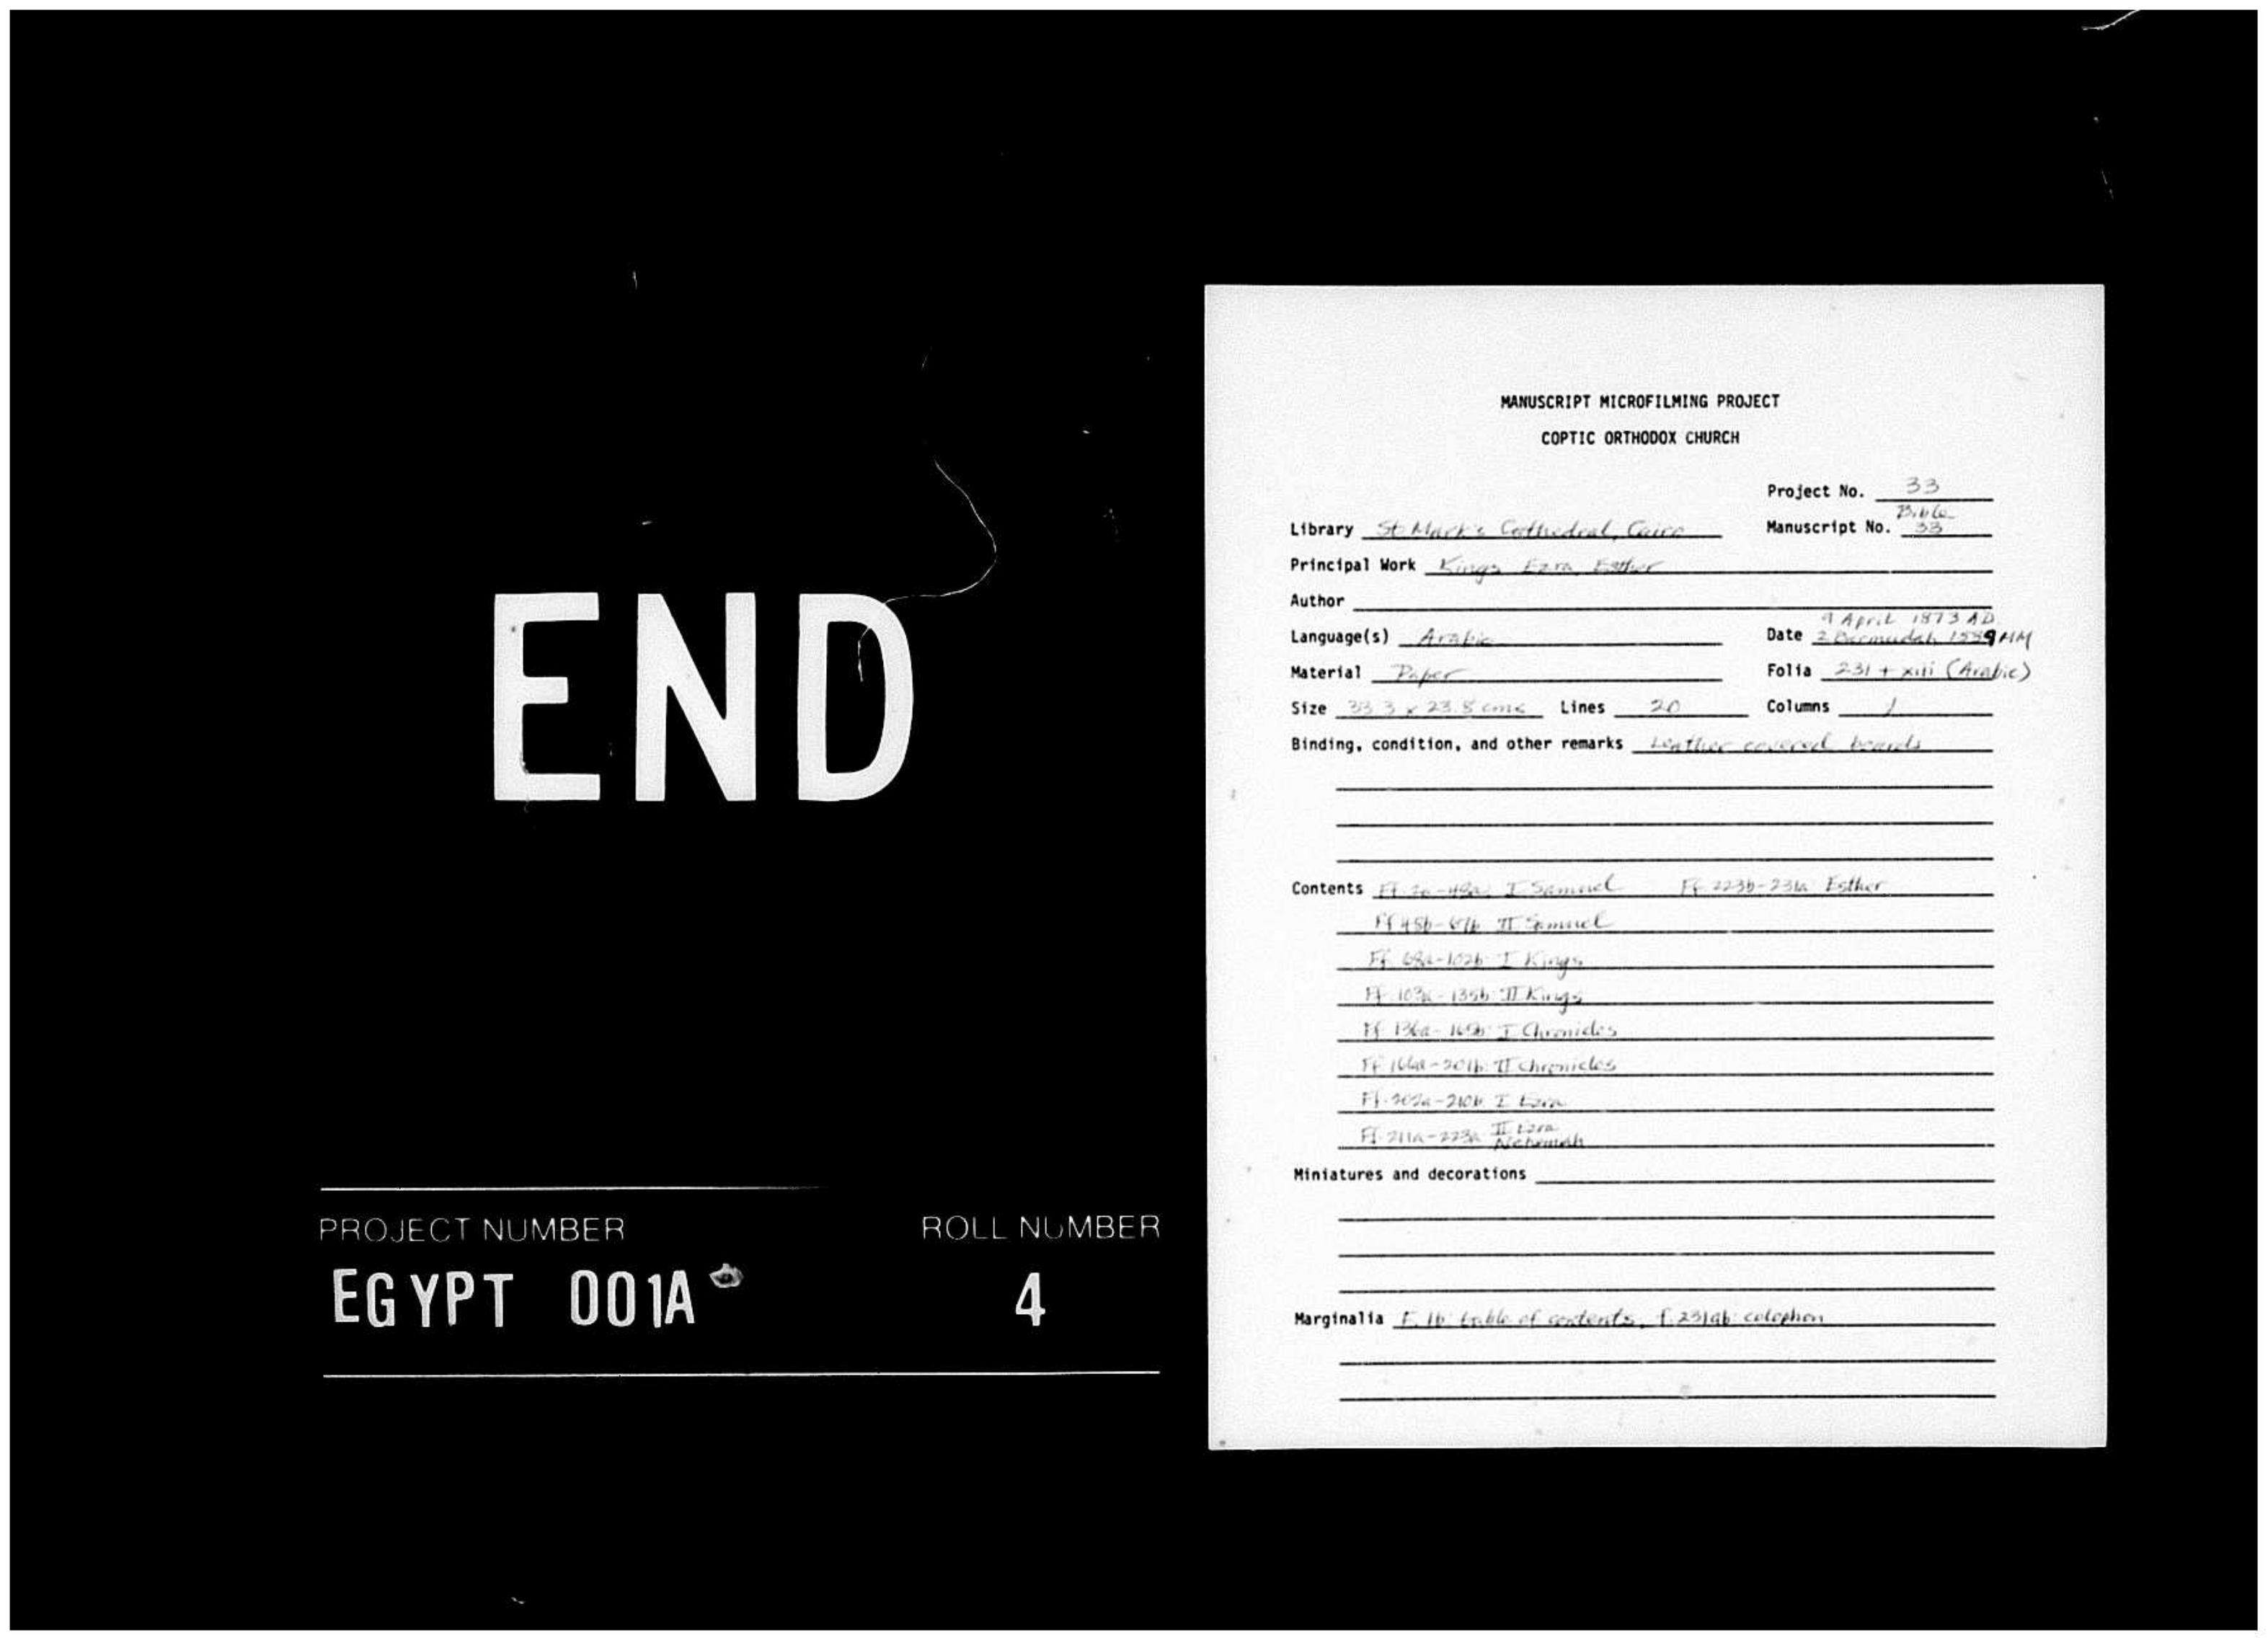 END
PROJECT NUMBER ROLL NUMBER
EGYPT 001A 4
MANUSCRIPT MICROFILMING PROJECT
COPTIC ORTHODOX CHURCH
Project No. 33
Bible
Library St Mark's Cathedral, Cairo Manuscript No. 33
Principal Work Kings, Ezra, Esther
Author
9 April 1873 AD
Language(s) Arabic Date 2 Barmudah 1589 AM
Material Paper Folia 231 + xiii (Arabic)
Size 33.3 x 23.8 cms Lines 20 Columns 1
Binding, condition, and other remarks Leather covered boards
Contents Ff. I Samuel Ff. 223b-231a: Esther
Ff. II Samuel
Ff. 68a-102b: I Kings
Ff. 103a-135b: II Kings
Ff. 136a-165b: I Chronicles
Ff. 166a-201b: II Chronicles
Ff. 202a-210b: I Ezra
II Ezra
Ff. 211a-223a: Nehemiah
Miniatures and decorations
Marginalia F. 1b: table of contents, f. 231ab: colophon